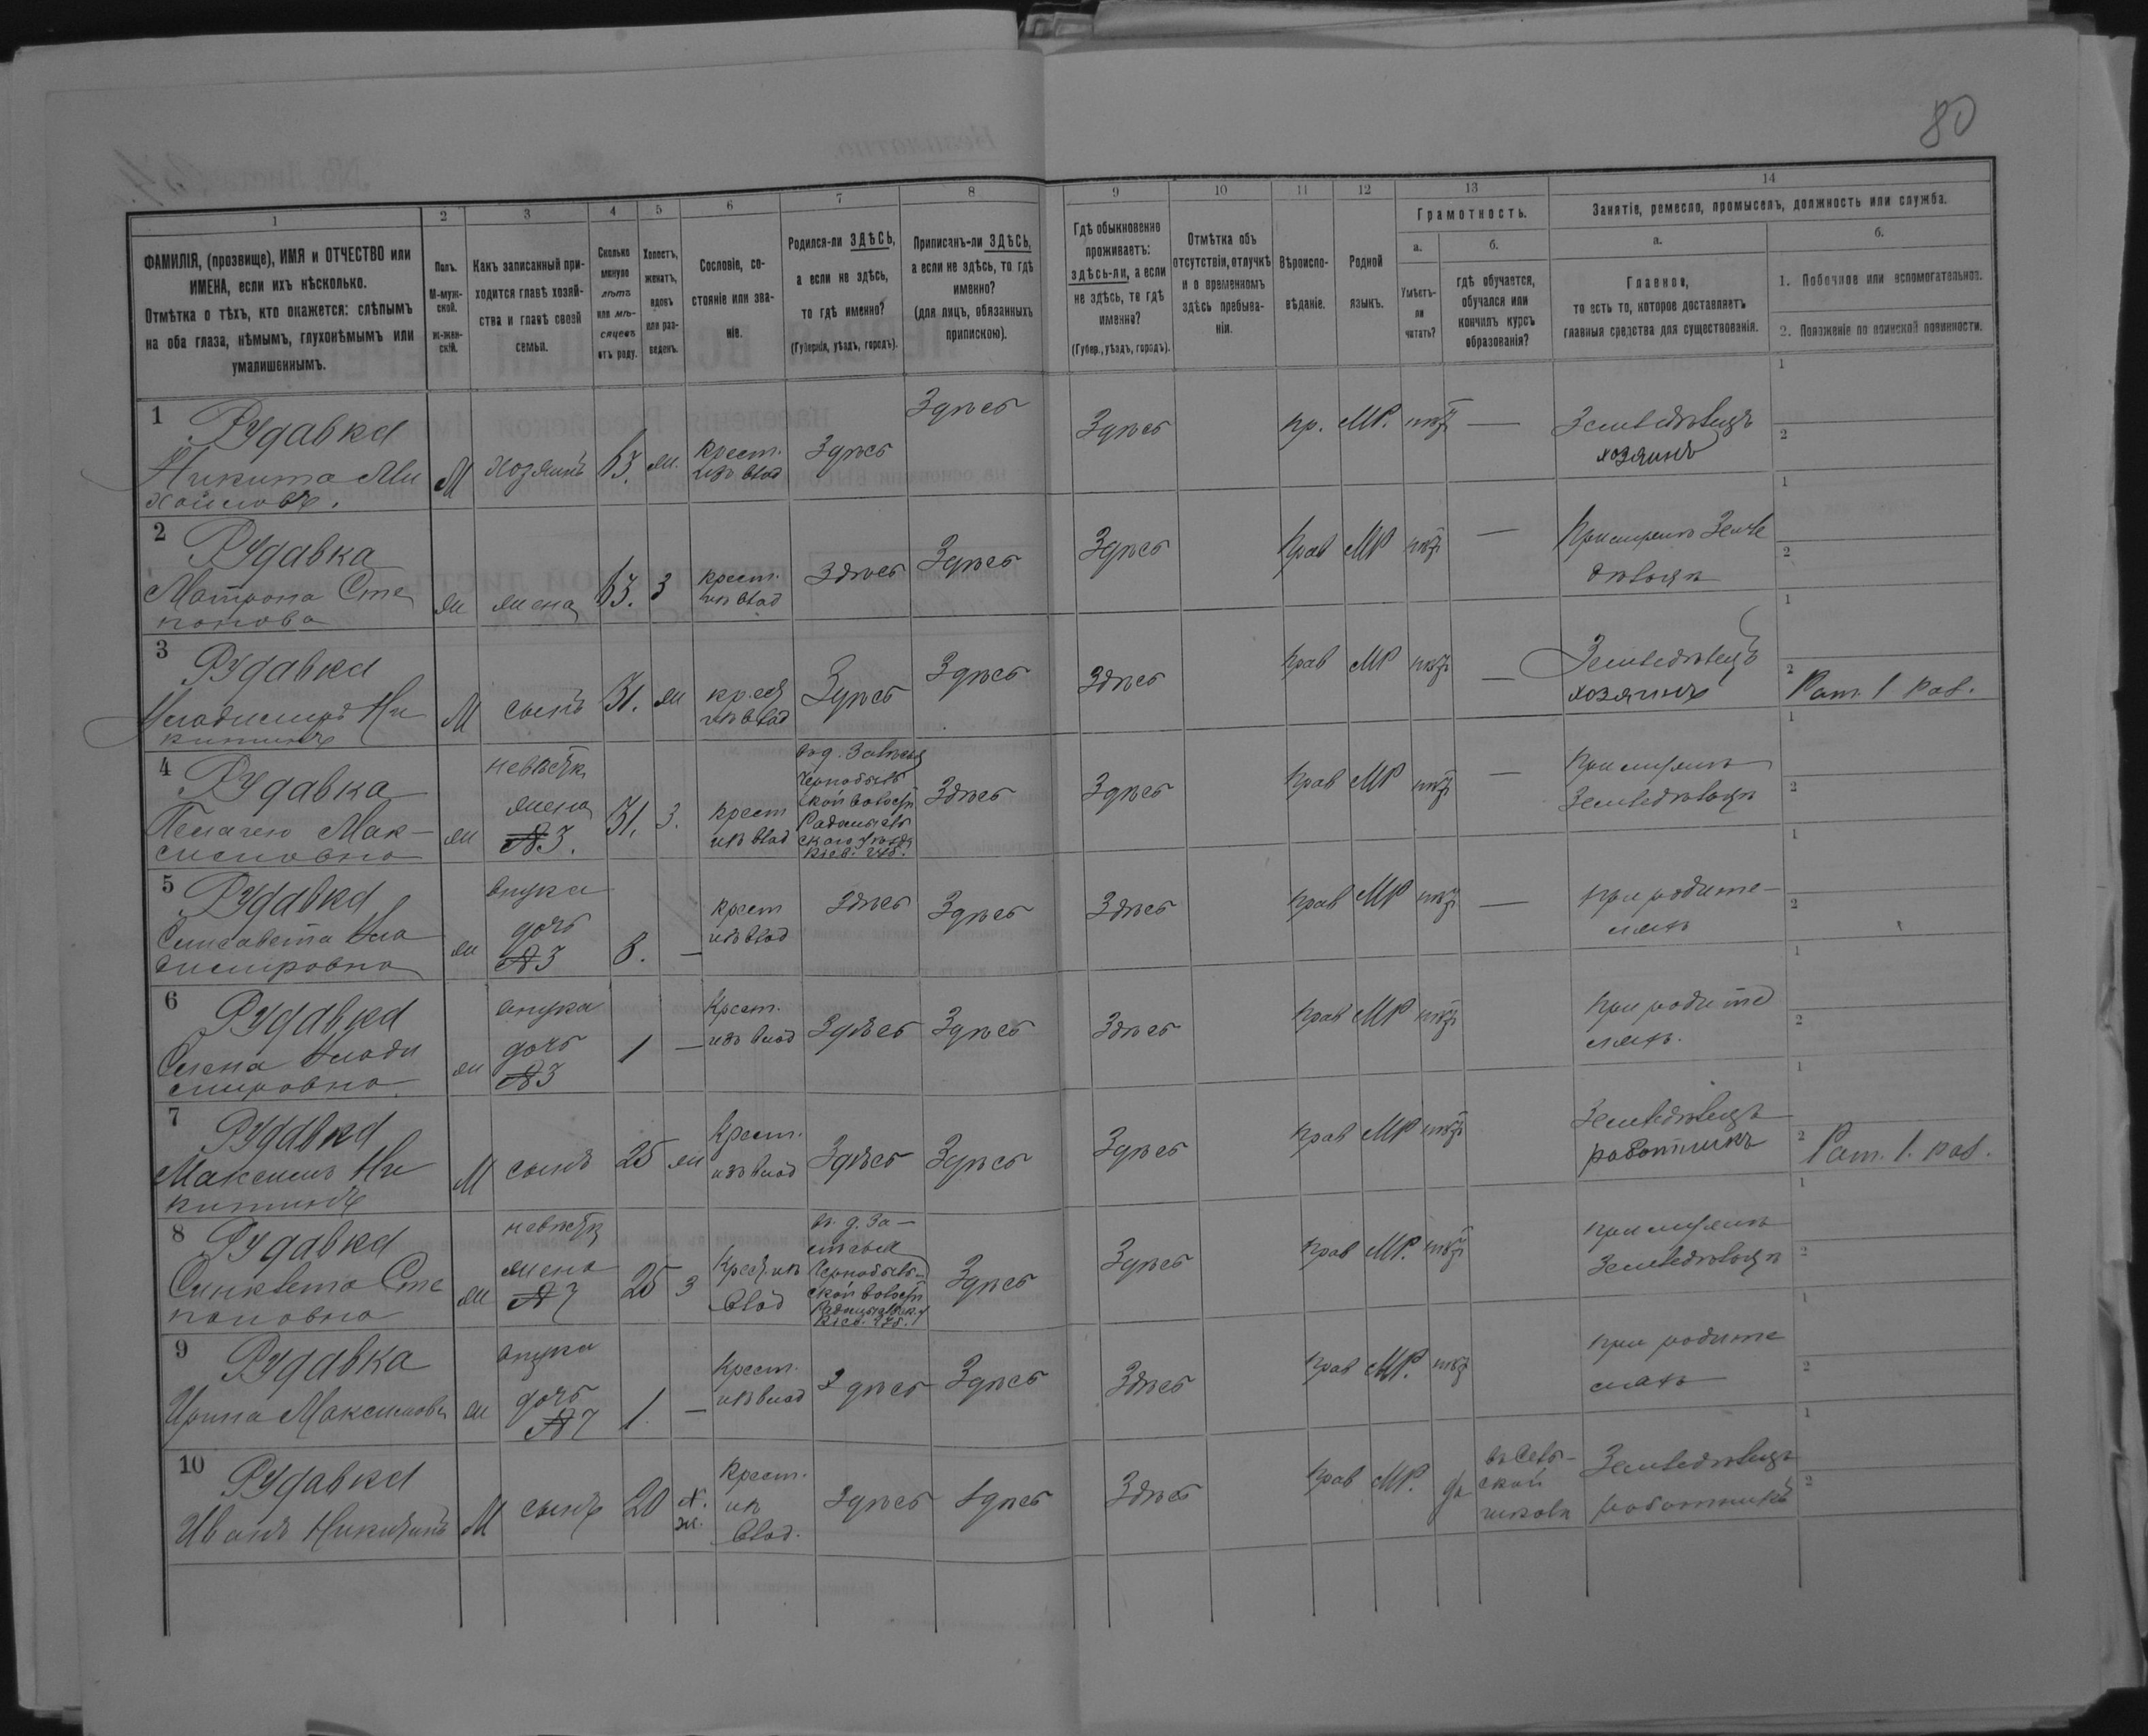 80
1 2 3 4 5 6 7 8 9 10 11 12 13 14
ФАМИЛІЯ, (прозвище), ИМЯ и ОТЧЕСТВО или
ИМЕНА, если ихъ нѣсколько.
Отмѣтка о тѣхъ, кто окажется: слѣпымъ
на оба глаза, нѣмымъ, глухонѣмымъ или
умалишеннымъ.
Полъ.
М-муж-
ской.
Ж-жен-
скій.
Какъ записанный при-
ходится главѣ хозяй-
ства и главѣ своей
семьи.
Сколько
минуло
лѣтъ
или мѣ-
сяцевъ
отъ роду.
Холостъ,
женатъ,
вдовъ
или раз-
веденъ.
Сословіе, со-
стояніе или зва-
ніе.
Родился-ли ЗДѢСЬ,
а если не здѣсь,
то гдѣ именно?
(Губернія, уѣздъ, городъ).
Приписанъ-ли ЗДѢСЬ,
а если не здѣсь, то гдѣ
именно?
(для лицъ, обязанныхъ
припискою).
Гдѣ обыкновенно
проживаетъ:
здѣсь-ли, а если
не здѣсь, то гдѣ
именно?
(Губер., уѣздъ, городъ).
Отмѣтка объ
отсутствіи, отлучкѣ
и о временномъ
здѣсь пребыва-
ніи.
Вѣроиспо-
вѣданіе.
Родной
языкъ.
Грамотность.
а.
Умѣетъ-
ли
читать?
б.
гдѣ обучается,
обучался или
кончилъ курсъ
образованія?
Занятіе, ремесло, промыселъ, должность или служба.
а.
Главное,
то есть то, которое доставляетъ
главныя средства для существованія.
б.
1. Побочное или вспомогательное.
2. Положеніе по воинской повинности.
1 Рудавка
Никита Ми
хайловъ.
М
хозяинъ
63.
ж.
крест.
изъ влад
Здѣсь
Здѣсь
Здѣсь
пр.
МР.
нѣтъ
—
Земледѣлецъ
хозяинъ
1
2
2 Рудавка
Матрона Сте
панова
ж
жена
63.
З
крест.
изъ влад
Здѣсь
Здѣсь
Здѣсь
прав
МР
нѣтъ
—
При мужѣ Земле
дѣльцѣ
1
2
3 Рудавка
Владимиръ Ни
китинъ
М
сынъ
31.
ж
крест
изъ влад
Здѣсь
Здѣсь
Здѣсь
прав
МР
нѣтъ
—
Земледѣлецъ
хозяинъ
1
2 Рат. 1 раз.
4 Рудавка
Пелагея Мак-
симовна
ж
невѣстка
жена
№3.
31.
З.
крест
изъ влад
Чернобыль
ской волости
Радомысль
скаго уѣзда
Кіев. губ.
Здѣсь
Здѣсь
прав
МР
нѣтъ
—
При мужѣ
Земледѣльцѣ
1
2
5 Рудавка
Елисавета Вла
димировна
ж
внука
дочь
№3
8.
—
крест
изъ влад
Здѣсь
Здѣсь
Здѣсь
прав
МР
нѣтъ
—
при родите-
ляхъ
1
2
6 Рудавка
Елена Влади
мировна
ж
внука
дочь
№3
1
—
Крест.
изъ влад
Здѣсь
Здѣсь
Здѣсь
прав
МР
нѣтъ
при родите
ляхъ.
1
2
7 Рудавка
Максимъ Ни
китинъ
М
сынъ
25
ж
Крест.
изъ влад
Здѣсь
Здѣсь
Здѣсь
прав
МР
нѣтъ
Земледѣлецъ
работникъ
1
2 Рат. 1. раз.
8 Рудавка
Синклета Сте
пановна
ж
невѣстка
жена
№7
25
З
Крест. изъ
влад
Чернобыль
ской волости
Радомысльск. у
Кіев. губ.
Здѣсь
Здѣсь
прав
МР.
нѣтъ
при мужѣ
Земледѣльцѣ
1
2
9 Рудавка
Ирина Максимовна
ж
внука
дочь
№7
1.
—
Крест.
изъ влад
Здѣсь
Здѣсь
Здѣсь
прав
МР.
нѣтъ
при родите
ляхъ
1
2
10 Рудавка
Иванъ Никитинъ
М
сынъ
20
Крест.
изъ
влад.
Здѣсь
Здѣсь
Здѣсь
прав
МР.
да
въ Сель-
ской
школѣ
Земледѣлецъ
работникъ
1
2